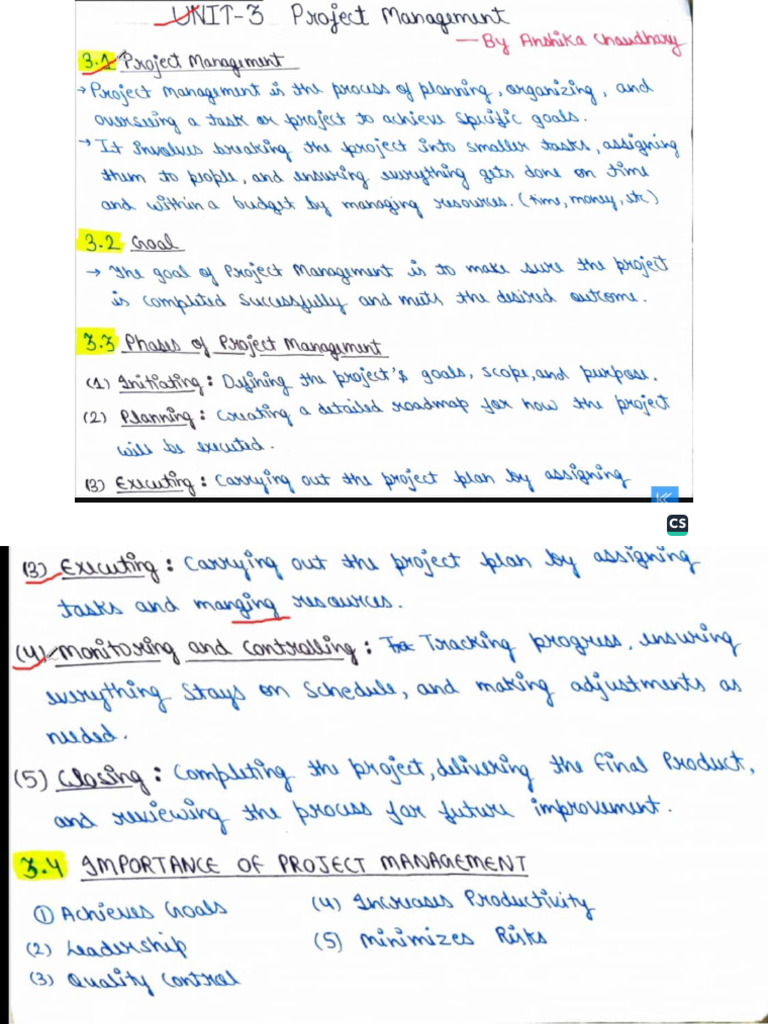 UNIT-3 Project Management
- By Anshika Chaudhary
3.1 Project Management
→ Project management is the process of planning, organizing, and
overseeing a task or project to achieve specific goals.
→ It involves breaking the project into smaller tasks, assigning
them to people, and ensuring everything gets done on time
and within a budget by managing resources. (time, money, etc)
3.2 Goal
→ The goal of Project Management is to make sure the project
is completed successfully and meets the desired outcome.
3.3 Phases of Project Management
(1) Initiating: Defining the project's goals, scope, and purpose.
(2) Planning: Creating a detailed roadmap for how the project
will be executed.
(3) Executing: Carrying out the project plan by assigning
CS
(3) Executing: Carrying out the project plan by assigning
tasks and manging resources.
(4) Monitoring and Controlling: Tracking progress, ensuring
everything stays on schedule, and making adjustments as
needed.
(5) Closing: Completing the project, delivering the final Product,
and reviewing the process for future improvement.
3.4 IMPORTANCE OF PROJECT MANAGEMENT
① Achieves Goals (4) Increases Productivity
(2) Leadership (5) Minimizes Risks
(3) Quality Control